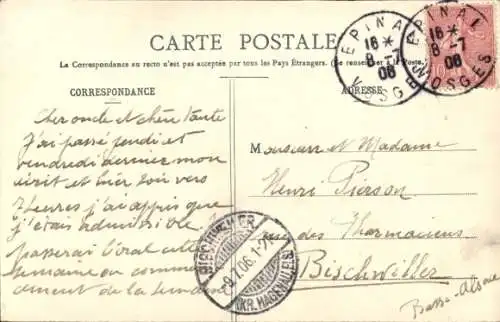 CARTE POSTALE
La Correspondance au recto n'est pas acceptée par tous les Pays Étrangers. (Se renseigner à la Poste.)
CORRESPONDANCE
ADRESSE
EPINAL
16 *
8 - 7
06
VOSGES
EPINAL
16 *
8 - 7
06
VOSGES
Cher oncle et chère tante
J'ai passé jeudi et
vendredi dernier mon
écrit et hier soir vers
7 heures j'ai appris que
j'étais admissible. Je
passerai l'oral cette
semaine ou commen-
cement de la semaine
Monsieur et Madame
Henri Pierson
rue des Pharmaciens
Bischwiller
Basse-Alsace
BISCHWEILER
9.7.06.1-2
(KR. HAGENAU ELS)